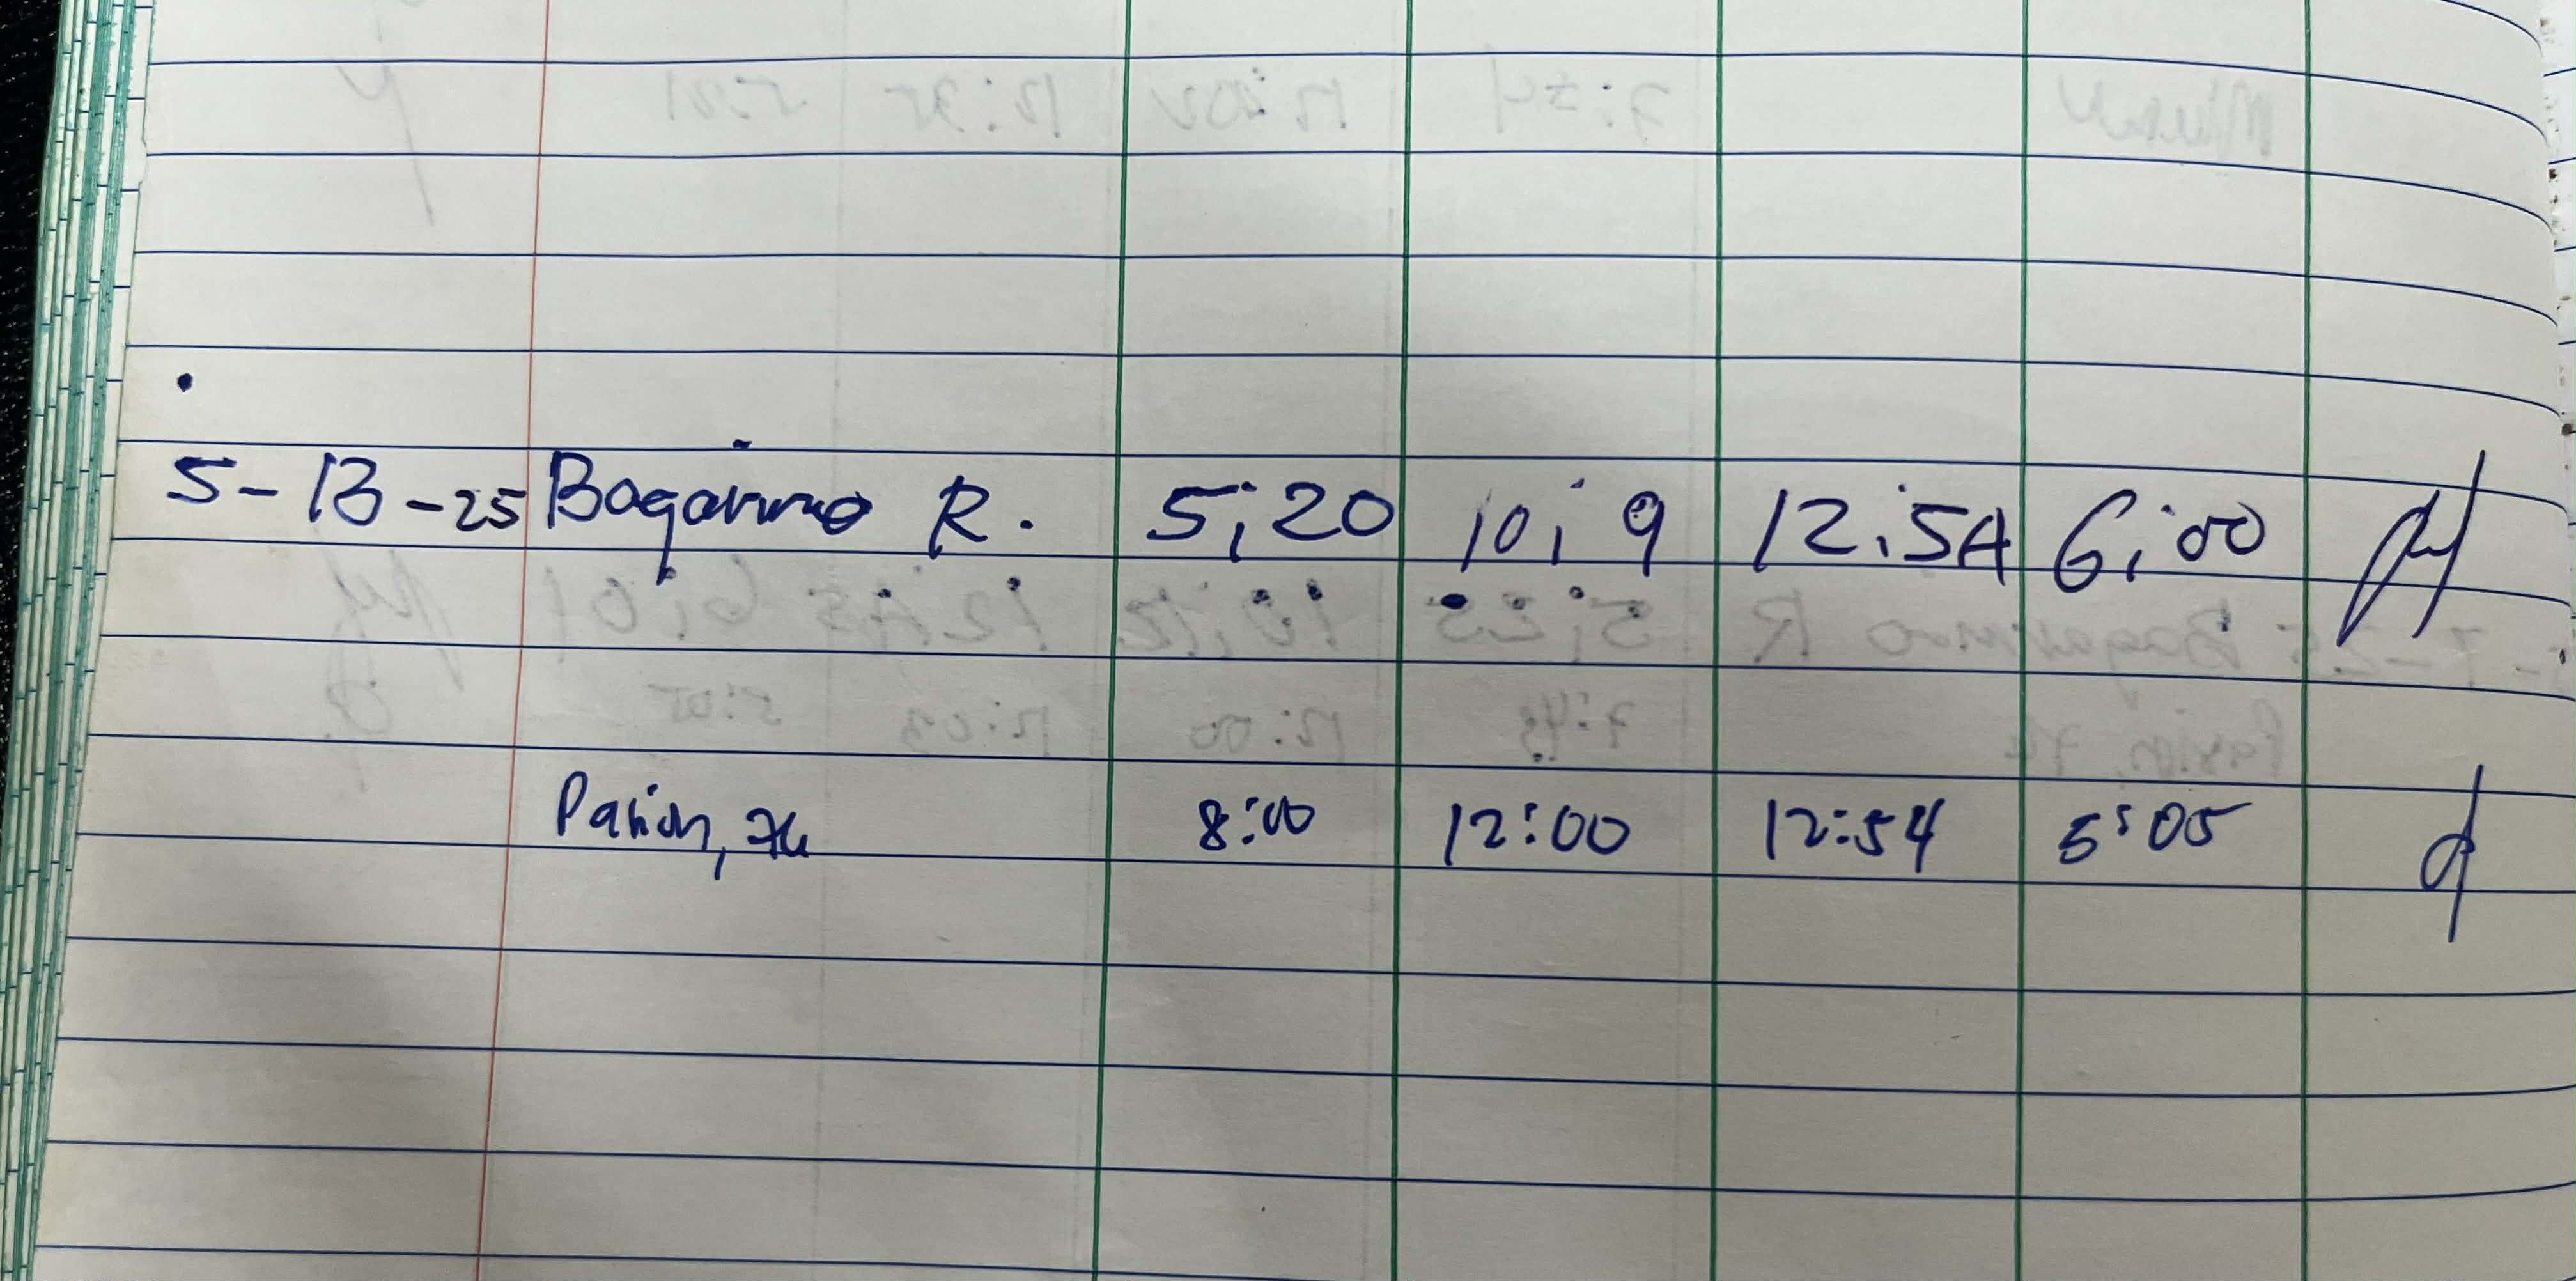 5-13-25 Bagarino R. 5;20 10;9 12:54 6:00
8:00 12:00 12:54 5:05